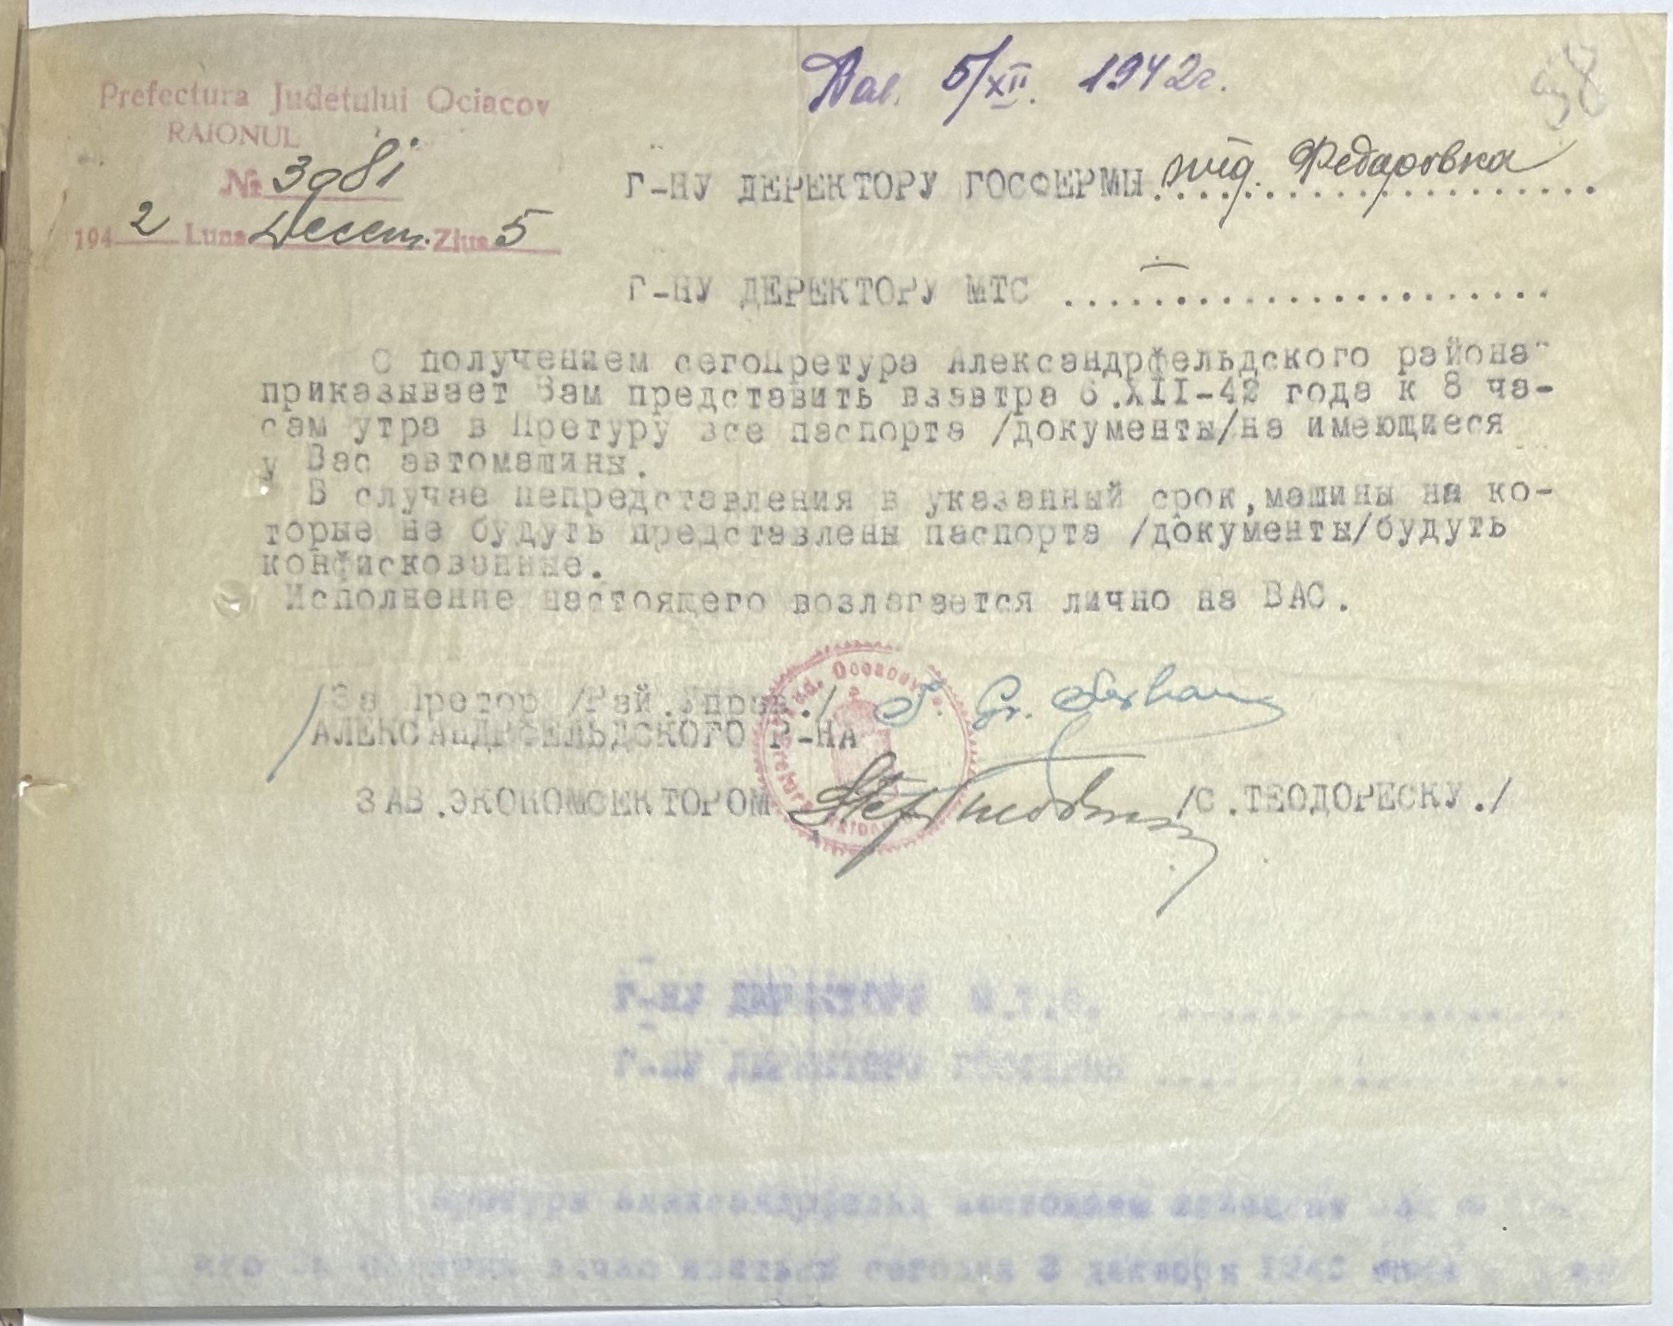 5/XII. 1942г.
38
Prefectura Judetului Ociacov
RAIONUL
№ 3981
1942 Luna Decem. Ziua 5
Г-НУ ДЕРЕКТОРУ ГОСФЕРМЫ Федаровка
Г-НУ ДЕРЕКТОРУ МТС ......................
С получением сегоПретура Александрфельдского района
приказывает Вам представить взавтра 6.XII-42 года к 8 ча-
сам утра в Претуру все паспорта /документы/на имеющиеся
у Вас автомашины.
В случае непредставления в указанный срок,машины на ко-
торые не будуть представлены паспорта /документы/будуть
конфискованные.
Исполнение настоящего возлагается лично на ВАС.
/За Претор /Рай.Управ./
АЛЕКСАНДРФЕЛЬДСКОГО Р-НА
ЗАВ.ЭКОНОМСЕКТОРОМ /С.ТЕОДОРЕСКУ./
Г-НУ ДИРЕКТОРУ М.Т.С.
Г-НУ ДИРЕКТОРУ ГОСФЕРМЫ
сегодня 3 декабря